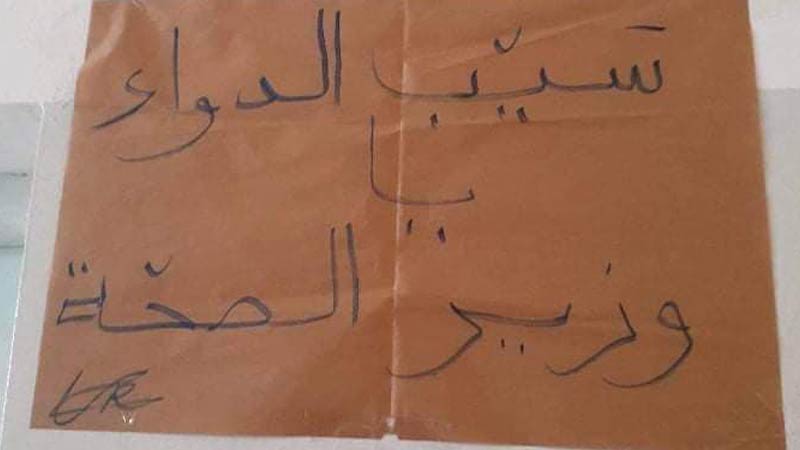 سيّب الدواء
يا
وزير الصحّة